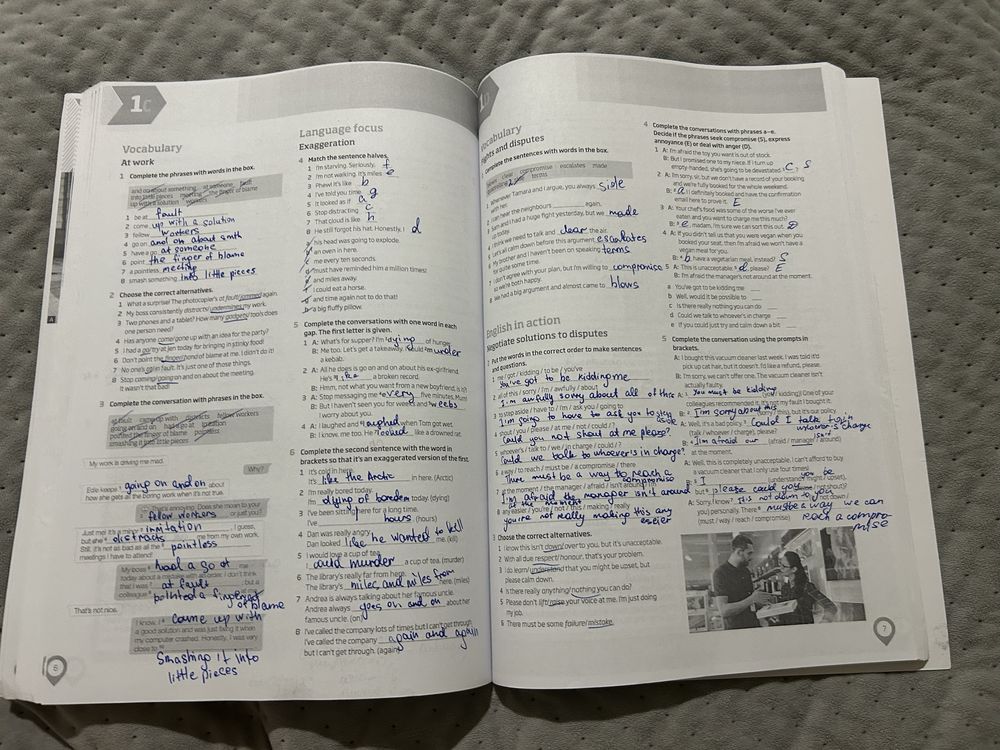 1C
Vocabulary
At work
1 Complete the phrases with words in the box.
and on about something at someone fault
into little pieces meeting the finger of blame
up with a solution
1 be at fault
2 come up with a solution
3 fellow workers
4 go on and on about smth
5 have a go at someone
6 point the finger of blame
7 a pointless meeting
8 smash something into little pieces
2 Choose the correct alternatives.
1 What a surprise! The photocopier's at fault/jammed again.
2 My boss consistently distracts/undermines my work.
3 Two phones and a tablet? How many gadgets/tools does
one person need?
4 Has anyone come/gone up with an idea for the party?
5 I had a go/try at Jen today for bringing in stinky food!
6 Don't point the finger/hand of blame at me. I didn't do it!
7 No one's at fault. It's just one of those things.
8 Stop coming/going on and on about the meeting.
It wasn't that bad!
3 Complete the conversation with phrases in the box.
at fault came up with distracts fellow workers
going on and on had a go at irritation
pointed the finger of blame pointless
smashing it into little pieces
My work is driving me mad.
Why?
Edie keeps going on and on about
how she gets all the boring work when it's not true.
That's annoying. Does she moan to your
fellow workers or just you?
Just me! It's a minor irritation, I guess,
but she distracts me from my own work.
Still, it's not as bad as all the pointless
meetings I have to attend!
My boss had a go at me
today about a mistake with an order. I don't think
that I was at fault, but a
colleague pointed a finger of blame
That's not nice.
I know. I came up with
a good solution and was just fixing it when
my computer crashed. Honestly, I was very
close to
Smashing it into
little pieces
6
Language focus
Exaggeration
4 Match the sentence halves.
1 I'm starving. Seriously,
2 I'm not walking. It's miles e
3 Phew! It's like b
4 I've told you time g
5 It looked as if a
6 Stop distracting c
7 That cloud is like h
8 He still forgot his hat. Honestly, I d
a his head was going to explode.
b an oven in here.
c me every ten seconds.
d must have reminded him a million times!
e and miles away.
f I could eat a horse.
g and time again not to do that!
h a big fluffy pillow.
5 Complete the conversations with one word in each
gap. The first letter is given.
1 A: What's for supper? I'm dying of hunger.
B: Me too. Let's get a takeaway. I could murder
a kebab.
2 A: All he does is go on and on about his ex-girlfriend.
He's like a broken record.
B: Hmm, not what you want from a new boyfriend, is it?
3 A: Stop messaging me every five minutes, Mum!
B: But I haven't seen you for weeks and weebs
I worry about you.
4 A: I laughed and laughed when Tom got wet.
B: I know, me too. He looked like a drowned rat.
6 Complete the second sentence with the word in
brackets so that it's an exaggerated version of the first.
1 It's cold in here.
It's like the Arctic in here. (Arctic)
2 I'm really bored today.
I'm dying of boredom today. (dying)
3 I've been sitting here for a long time.
I've hours. (hours)
4 Dan was really angry
Dan looked like he wanted to kill me. (kill)
5 I would love a cup of tea.
I could murder a cup of tea. (murder)
6 The library's really far from here.
The library's miles and miles from here. (miles)
7 Andrea is always talking about her famous uncle.
Andrea always goes on and on about her
famous uncle. (on)
8 I've called the company lots of times but I can't get through.
I've called the company again and again
but I can't get through. (again)
Vocabulary
Fights and disputes
Complete the sentences with words in the box.
compromise escalates made
terms
Whenever Tamara and I argue, you always side
with her.
I can hear the neighbours again.
Sam and I had a huge fight yesterday, but we made
up today.
I think we need to talk and clear the air.
Let's all calm down before this argument escalates
My brother and I haven't been on speaking terms
for quite some time.
I don't agree with your plan, but I'm willing to compromise
so we're both happy.
We had a big argument and almost came to blows
English in action
Negotiate solutions to disputes
2 Put the words in the correct order to make sentences
and questions.
1 me / got / kidding / to be / you've
You've got to be kidding me
2 all of this / sorry / I'm / awfully / about
I'm awfully sorry about all of this
3 to step aside / have to / I'm / ask you / going to
I'm going to have to ask you to step aside
4 shout / you / please / at me / not / could / ?
Could you not shout at me please?
5 whoever's / talk to / we / in charge / could / ?
Could we talk to whoever's in charge?
6 a way / to reach / must be / a compromise / there
There must be a way to reach a
compromise
7 at the moment / the manager / afraid / isn't around / I'm
I'm afraid the manager isn't around
at the moment
8 any easier / you're / not / this / making / really
you're not really making this any
easier
3 Choose the correct alternatives.
1 I know this isn't down/over to you, but it's unacceptable.
2 With all due respect/honour, that's your problem.
3 I do learn/understand that you might be upset, but
please calm down.
4 Is there really anything/nothing you can do?
5 Please don't lift/raise your voice at me. I'm just doing
my job.
6 There must be some failure/mistake.
4 Complete the conversations with phrases a–e.
Decide if the phrases seek compromise (S), express
annoyance (E) or deal with anger (D).
1 A: I'm afraid the toy you want is out of stock.
B: But I promised one to my niece. If I turn up
empty-handed, she's going to be devastated. c, S
2 A: I'm sorry, sir, but we don't have a record of your booking
and we're fully booked for the whole weekend.
B: a I definitely booked and have the confirmation
email here to prove it. E
3 A: Your chef's food was some of the worse I've ever
eaten and you want to charge me this much?
B: e, madam. I'm sure we can sort this out. D
4 A: If you didn't tell us that you were vegan when you
booked your seat, then I'm afraid we won't have a
vegan meal for you.
B: b have a vegetarian meal, instead? S
5 A: This is unacceptable. d, please? E
B: I'm afraid the manager's not around at the moment.
a You've got to be kidding me
b Well, would it be possible to
c Is there really nothing you can do
d Could we talk to whoever's in charge
e If you could just try and calm down a bit
5 Complete the conversation using the prompts in
brackets.
A: I bought this vacuum cleaner last week. I was told it'd
pick up cat hair, but it doesn't. I'd like a refund, please.
B: I'm sorry, we can't offer one. The vacuum cleaner isn't
actually faulty.
A: You must be kidding (you / kidding). One of your
colleagues recommended it. It's not my fault I bought it.
B: I'm sorry about this (sorry / this), but it's our policy.
A: Well, it's a bad policy! Could I talk to
whoever's in charge
(talk / whoever / charge), please?
B: I'm afraid our (afraid / manager / around)
isn't
at the moment.
A: Well, this is completely unacceptable. I can't afford to buy
a vacuum cleaner that I only use four times!
B: I (understand / might / upset),
but please could you (not should)?
A: Sorry, I know It's not down to you (not down /
you) personally. There must be a way we can
(must / way / reach / compromise) reach a compro-
mise
7